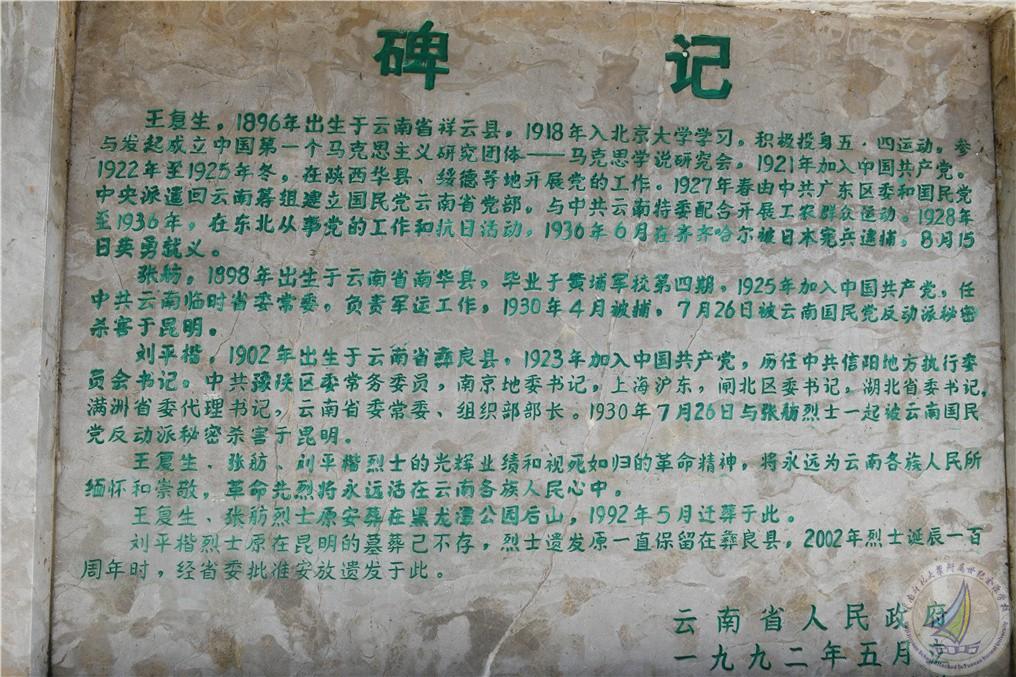 碑 记
王复生，1896年出生于云南省祥云县，1918年入北京大学学习，积极投身五·四运动。参
与发起成立中国第一个马克思主义研究团体——马克思学说研究会，1921年加入中国共产党。
1922年至1925年冬，在陕西华县、绥德等地开展党的工作。1927年春由中共广东区委和国民党
中央派遣回云南筹组建立国民党云南省党部，与中共云南特委配合开展工农群众运动。1928年
至1936年，在东北从事党的工作和抗日活动，1936年6月在齐齐哈尔被日本宪兵逮捕，8月15
日英勇就义。
张舫，1898年出生于云南省南华县，毕业于黄埔军校第四期，1925年加入中国共产党，任
中共云南临时省委常委，负责军运工作，1930年4月被捕，7月26日被云南国民党反动派秘密
杀害于昆明。
刘平楷，1902年出生于云南省彝良县，1923年加入中国共产党，历任中共信阳地方执行委
员会书记，中共豫陕区委常务委员，南京地委书记，上海沪东，闸北区委书记，湖北省委书记，
满洲省委代理书记，云南省委常委、组织部部长。1930年7月26日与张舫烈士一起被云南国民
党反动派秘密杀害于昆明。
王复生、张舫、刘平楷烈士的光辉业绩和视死如归的革命精神，将永远为云南各族人民所
缅怀和崇敬，革命先烈将永远活在云南各族人民心中。
王复生、张舫烈士原安葬在黑龙潭公园后山，1992年5月迁葬于此。
刘平楷烈士原在昆明的墓葬已不存，烈士遗发原一直保留在彝良县，2002年烈士诞辰一百
周年时，经省委批准安放遗发于此。
云南省人民政府
一九九二年五月立